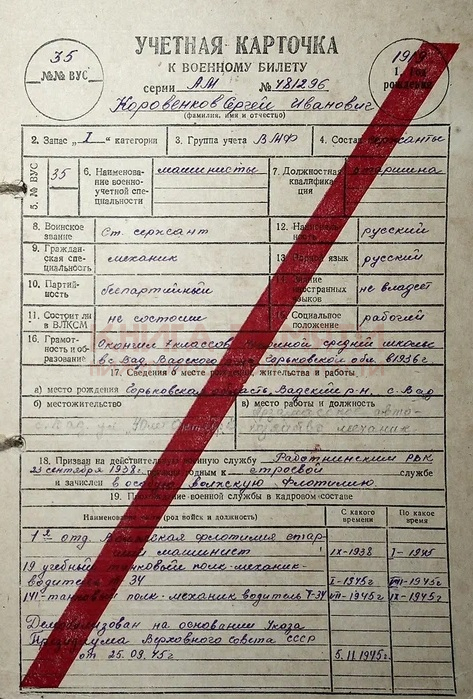 35
№№ ВУС
УЧЕТНАЯ КАРТОЧКА
К ВОЕННОМУ БИЛЕТУ
серии АМ № 481296
1. Год
рождения
Коровенков Сергей Иванович
(фамилия, имя и отчество)
2. Запас „I“ категории
3. Группа учета ВМФ
4. Состав сержанты
5. № ВУС
35
6. Наименование военно-учетной специальности
машинисты
7. Должностная квалификация
старшина
8. Воинское звание
Ст. сержант
12.
русский
9. Гражданская специальность
механик
13. язык
русский
10. Партийность
беспартийный
14. иностранных языков
не владеет
11. Состоит ли в ВЛКСМ
не состоит
15. Социальное положение
рабочий
16. Грамотность и образование
Окончил 7 классов средней школы
в с. Вад, Вадского Горьковской обл. в 1936 г.
17. Сведения о месте рождения, жительства и работы
а) место рождения Горьковская область, Вадский р-н, с. Вад
б) местожительство
с. Вад, ул.
в) место работы и должность
механик
18. Призван на действительную военную службу Работкинским РВК
23 сентября 1938 г. к строевой службе
и зачислен в особую волжскую флотилию.
19. Прохождение военной службы в кадровом составе
Наименование части (род войск и должность)
С какого времени
По какое время
1е отд. Волжская флотилия стар-
ший машинист IX-1938 I-1945
19 учебный танковый полк-механик-
водитель 34 I-1945г VII-1945г
141-танковый полк-механик водитель Т-34 VII-1945г IX-1945г
Демобилизован на основании Указа
Президиума Верховного Совета СССР
от 25.09.45г 5.11.1945г.